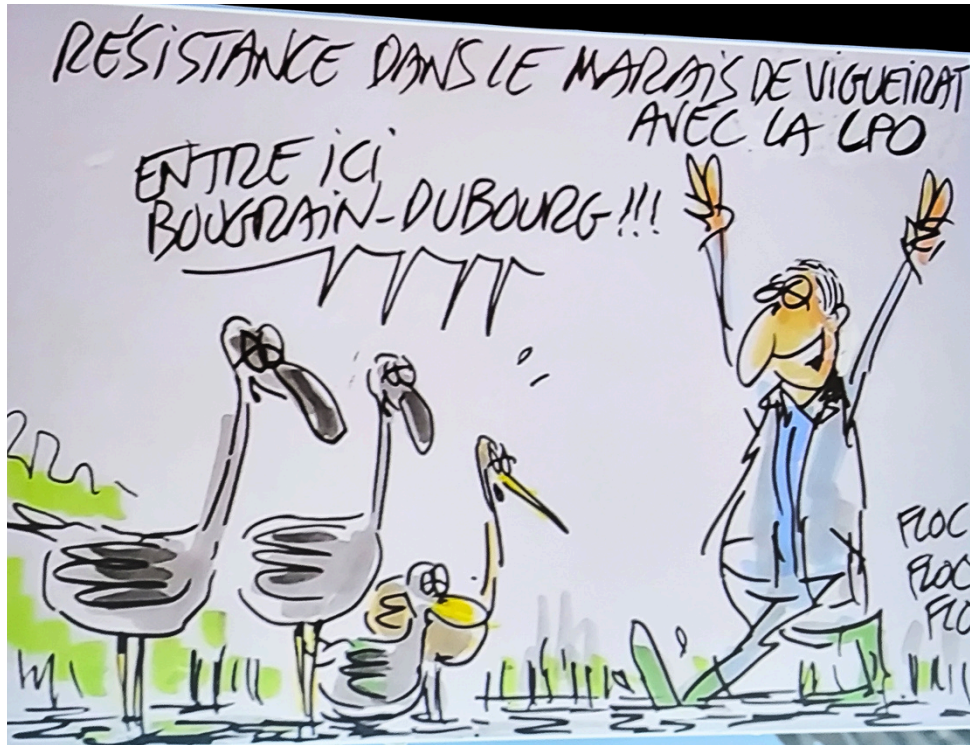 RÉSISTANCE DANS LE MARAIS DE VIGUEIRAT
AVEC LA LPO
ENTRE ICI
BOUGRAIN-DUBOURG !!!
FLOC
FLOC
FLO